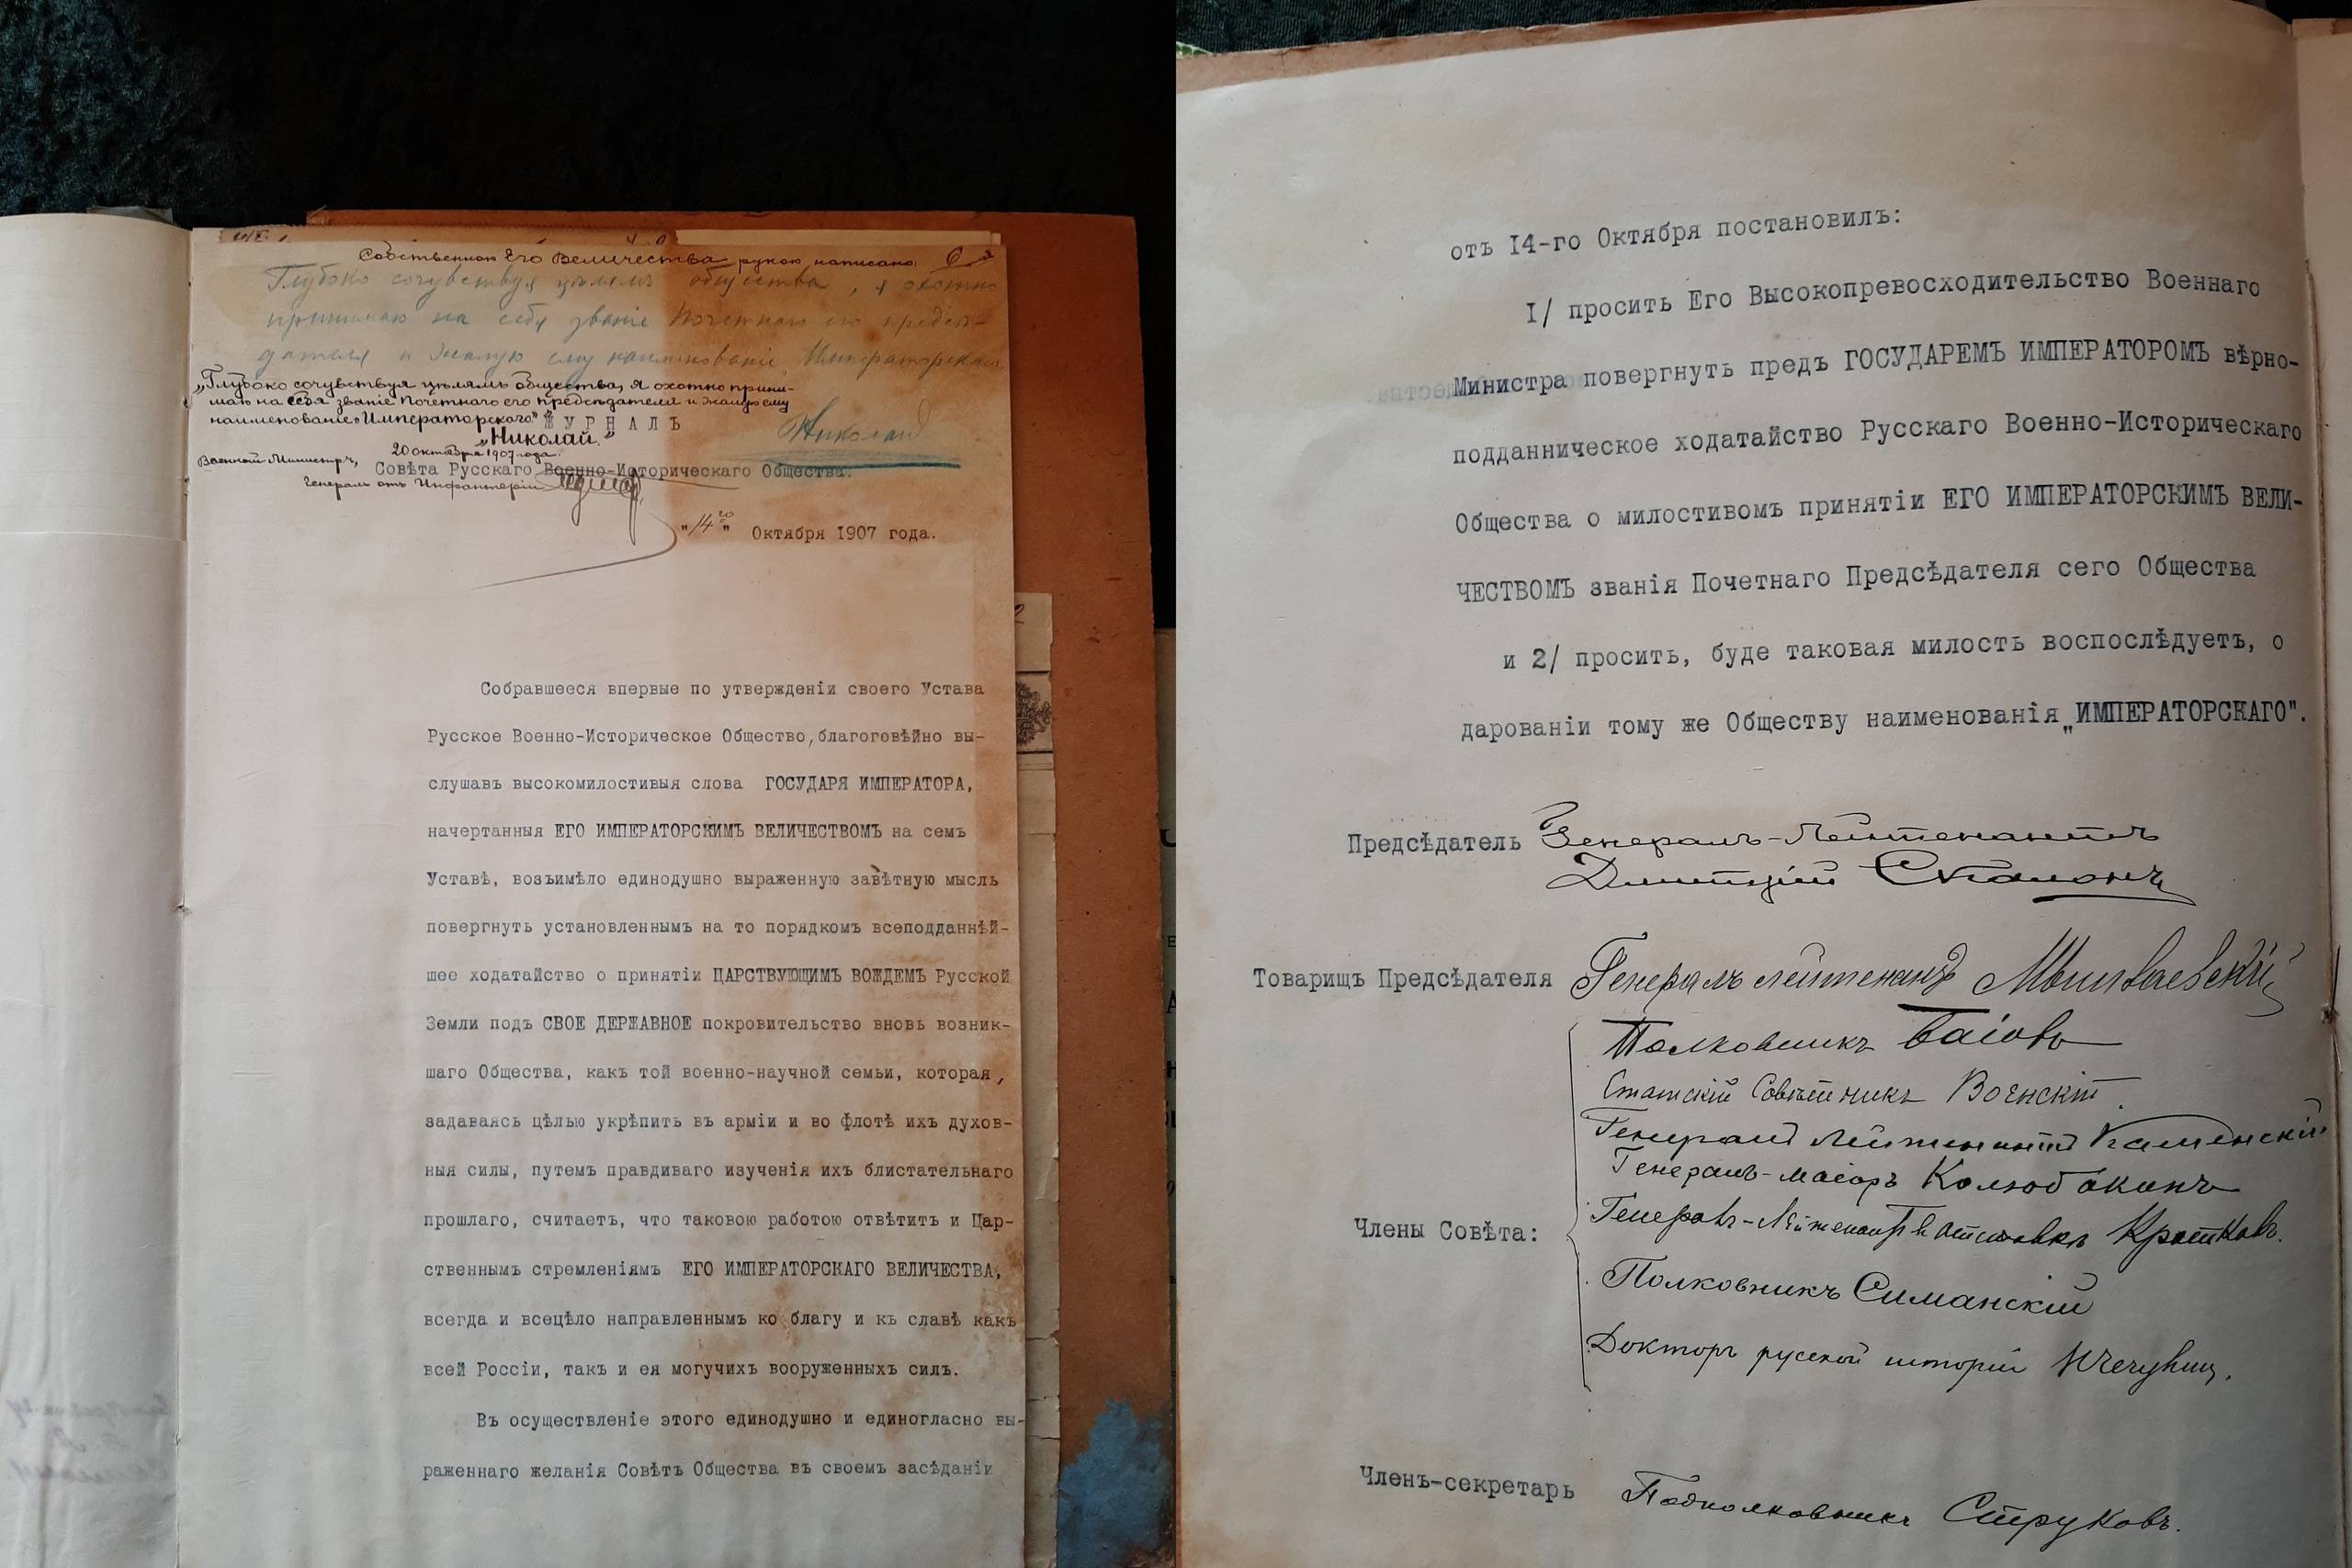 Собственною Его Величества рукою написано:
Глубоко сочувствуя цѣлямъ общества, я охотно
принимаю на себя званіе Почетнаго его предсѣ-
дателя и жалую ему наименованіе Императорскаго
Николай
„Глубоко сочувствуя цѣлямъ общества, я охотно прини-
маю на себя званіе Почетнаго его предсѣдателя и жалую ему
наименованіе „Императорскаго"
ЖУРНАЛЪ
„Николай."
20 октября 1907 года.
Военный Министръ,
Совѣта Русскаго Военно-Историческаго Общества.
Генералъ отъ Инфантеріи
"14го" Октября 1907 года.
Собравшееся впервые по утвержденіи своего Устава
Русское Военно-Историческое Общество, благоговѣйно вы-
слушавъ высокомилостивыя слова ГОСУДАРЯ ИМПЕРАТОРА,
начертанныя ЕГО ИМПЕРАТОРСКИМЪ ВЕЛИЧЕСТВОМЪ на семъ
Уставѣ, возъимѣло единодушно выраженную завѣтную мысль
повергнуть установленнымъ на то порядкомъ всеподданнѣй-
шее ходатайство о принятіи ЦАРСТВУЮЩИМЪ ВОЖДЕМЪ Русской
Земли подъ СВОЕ ДЕРЖАВНОЕ покровительство вновь возник-
шаго Общества, какъ той военно-научной семьи, которая,
задаваясь цѣлью укрѣпить въ арміи и во флотѣ ихъ духов-
ныя силы, путемъ правдиваго изученія ихъ блистательнаго
прошлаго, считаетъ, что таковою работою отвѣтитъ и Цар-
ственнымъ стремленіямъ ЕГО ИМПЕРАТОРСКАГО ВЕЛИЧЕСТВА,
всегда и всецѣло направленнымъ ко благу и къ славѣ какъ
всей Россіи, такъ и ея могучихъ вооруженныхъ силъ.
Въ осуществленіе этого единодушно и единогласно вы-
раженнаго желанія Совѣтъ Общества въ своемъ засѣданіи
отъ 14-го Октября постановилъ:
1/ просить Его Высокопревосходительство Военнаго
Министра повергнуть предъ ГОСУДАРЕМЪ ИМПЕРАТОРОМЪ вѣрно-
подданническое ходатайство Русскаго Военно-Историческаго
Общества о милостивомъ принятіи ЕГО ИМПЕРАТОРСКИМЪ ВЕЛИ-
ЧЕСТВОМЪ званія Почетнаго Предсѣдателя сего Общества
и 2/ просить, буде таковая милость воспослѣдуетъ, о
дарованіи тому же Обществу наименованія „ИМПЕРАТОРСКАГО".
Предсѣдатель Генералъ-Лейтенантъ
Дмитрій Скалонъ
Товарищъ Предсѣдателя Генералъ лейтенантъ Мышлаевскій
Члены Совѣта:
Полковникъ Баіовъ
Статскій Совѣтникъ Военскій
Генералъ Лейтенантъ Каменскій
Генералъ-маіоръ Колюбакинъ
Генералъ-Лейтенантъ въ отставкѣ Кротковъ.
Полковникъ Симанскій
Докторъ русской исторіи Н Чечулинъ.
Членъ-секретарь Подполковникъ Струковъ.